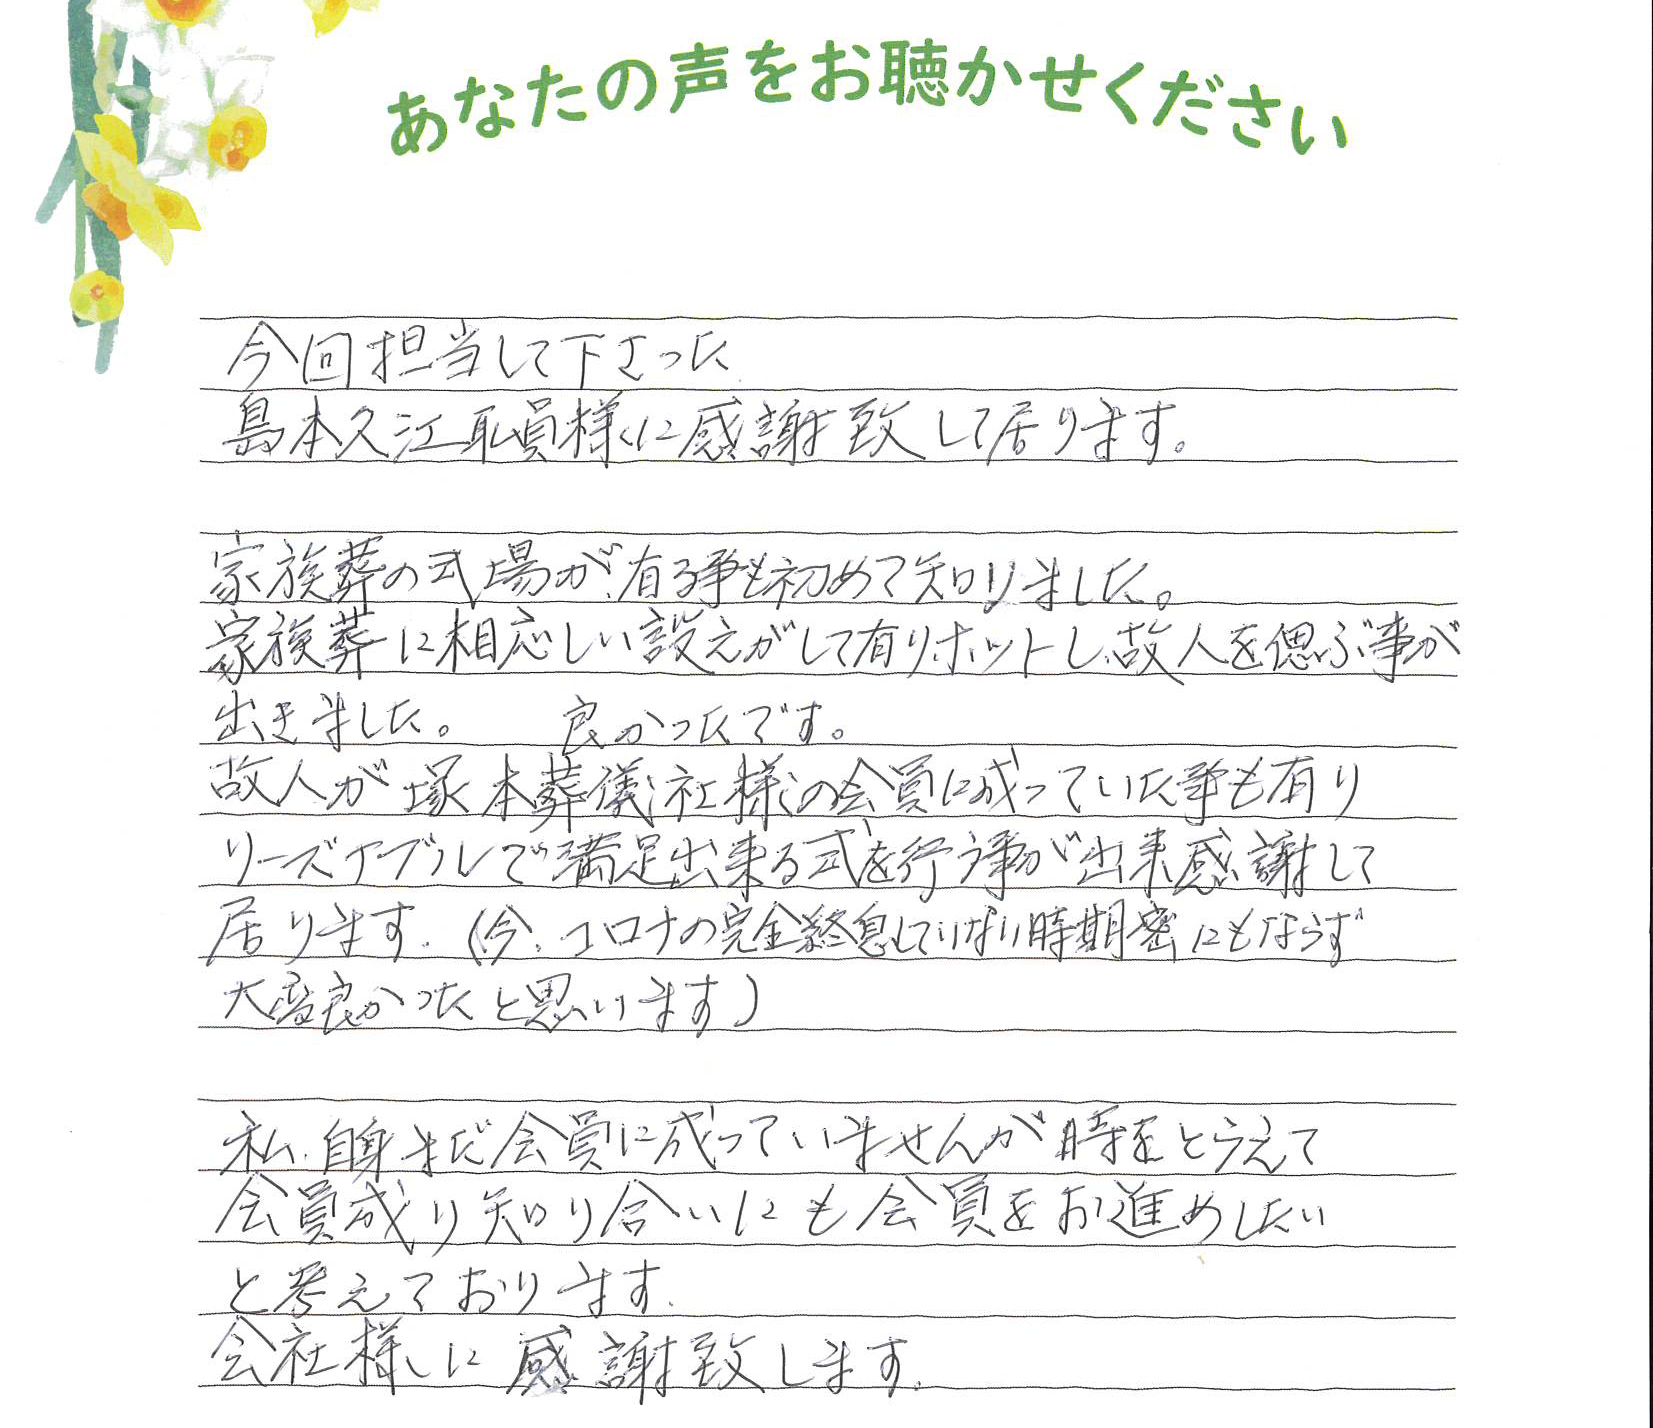 あなたの声をお聴かせください
今回担当して下さった
島本久江職員様に感謝致して居ります。
家族葬の式場が有る事も初めて知りました。
家族葬に相応しい設えがして有りホットし、故人を偲ぶ事が
出きました。 良かったです。
故人が塚本葬儀社様の会員に成っていた事も有り
リーズナブルで満足出来る式を行う事が出来感謝して
居ります。(今、コロナの完全終息していない時期密にもならず
大変良かったと思います)
私、自身まだ会員に成っていませんが時をとらえて
会員成り知り合いにも会員をお進めしたい
と考えております。
会社様に感謝致します。